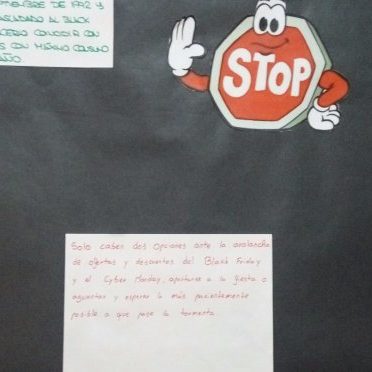 DE 1992 Y
AL BLACK
CONOCER CON
CON MÍNIMO CONSUMO
AÑO
STOP
Solo caben dos opciones ante la avalancha
de ofertas y descuentos del Black Friday
y el Cyber Monday, apuntarse a la fiesta o
aguantar y esperar lo más pacientemente
posible a que pase la tormenta.